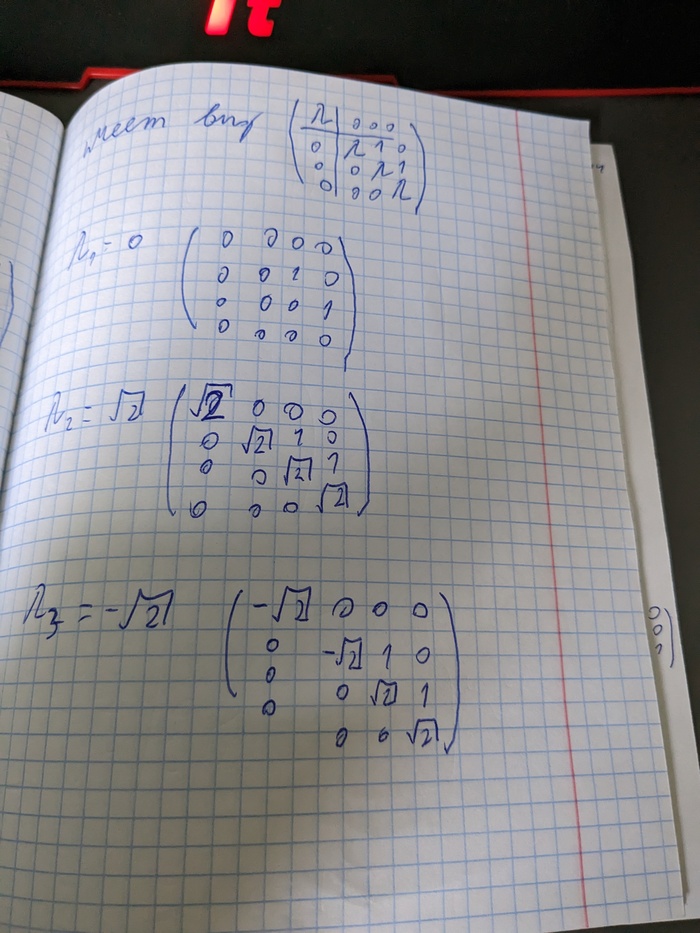 имеет вид ( λ | 0 0 0
0 | λ 1 0
0 | 0 λ 1
0 | 0 0 λ )
λ₁ = 0 ( 0 0 0 0
0 0 1 0
0 0 0 1
0 0 0 0 )
λ₂ = √2 ( √2 0 0 0
0 √2 1 0
0 0 √2 1
0 0 0 √2 )
λ₃ = -√2 ( -√2 0 0 0
0 -√2 1 0
0 0 √2 1
0 0 0 √2 )
0
0